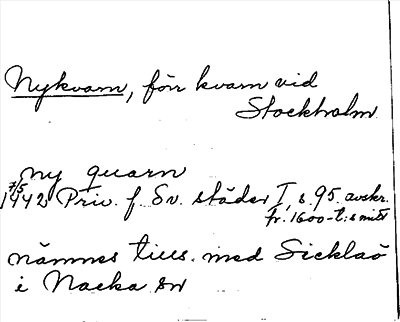 Nykvarn, förr kvarn vid
Stockholm.
ny quarn
7/5
1442 Priv. f. Sv. städer I, s. 95. avskr.
fr. 1600-t:s mitt
nämnes tills. med Sicklaö
i Nacka sn